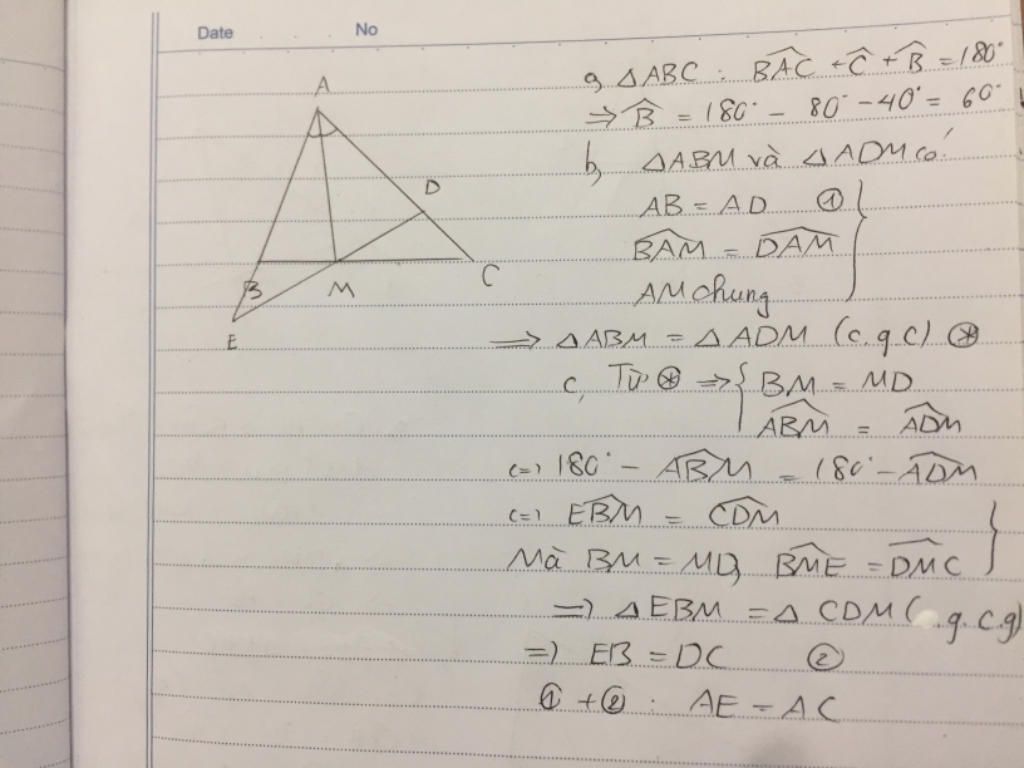 Date No
A
D
B
M
C
E
a, △ABC : BAC^ + C^ + B^ = 180°
=> B^ = 180° - 80° - 40° = 60°
b, △ABM và △ADM có:
AB = AD ①
BAM^ = DAM^
AM chung
=> △ABM = △ADM (c.g.c) ⊛
c, Từ ⊛ => { BM = MD
ABM^ = ADM^
(=) 180° - ABM^ = 180° - ADM^
(=) EBM^ = CDM^
Mà BM = MD, BME^ = DMC^
=) △EBM = △CDM ( .g.c.g)
=) EB = DC ②
① + ② : AE = AC